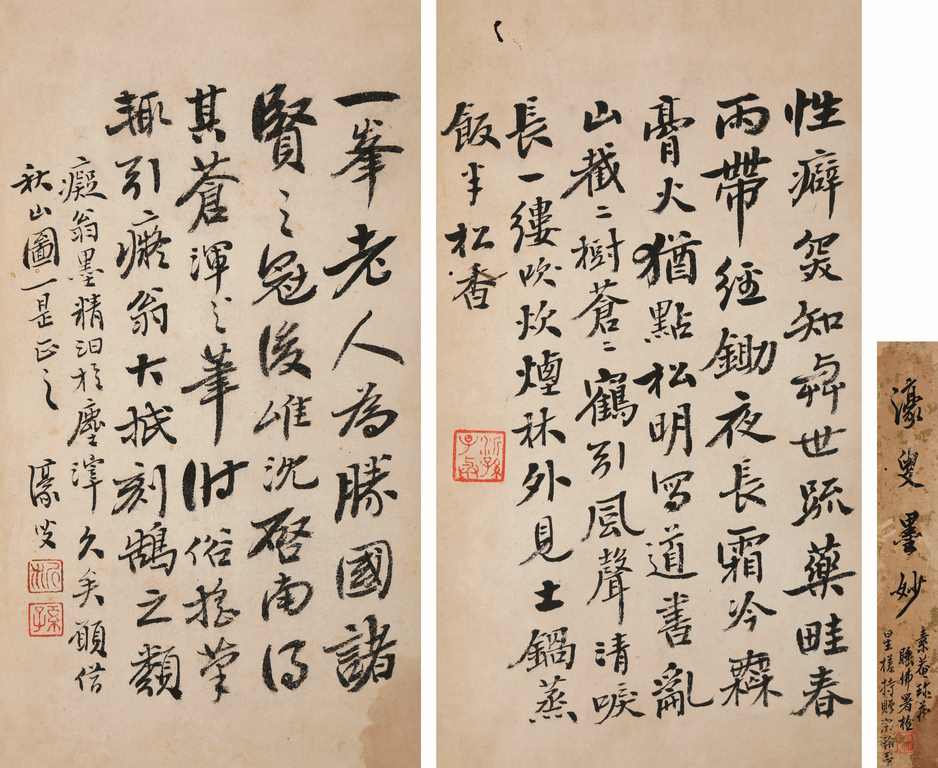 濠叟墨妙
素菴珍藏
聽佛署檢
星槎持贈宗翰
性癖從知與世疏藥畦春
雨帶經鋤夜長霜冷無
膏火猶點松明寫道書亂
山截〻樹蒼〻鶴引風聲清唳
長一縷吹炊煙林外見土鍋蒸
飯半松香
沂孫
一峯老人為勝國諸
賢之冠後唯沈啓南得
其蒼渾之筆時俗搖筆
輒引癡翁大抵刻鵠之類
癡翁墨精汩於塵滓久矣願借
秋山圖一是正之 濠叟
沂
孫